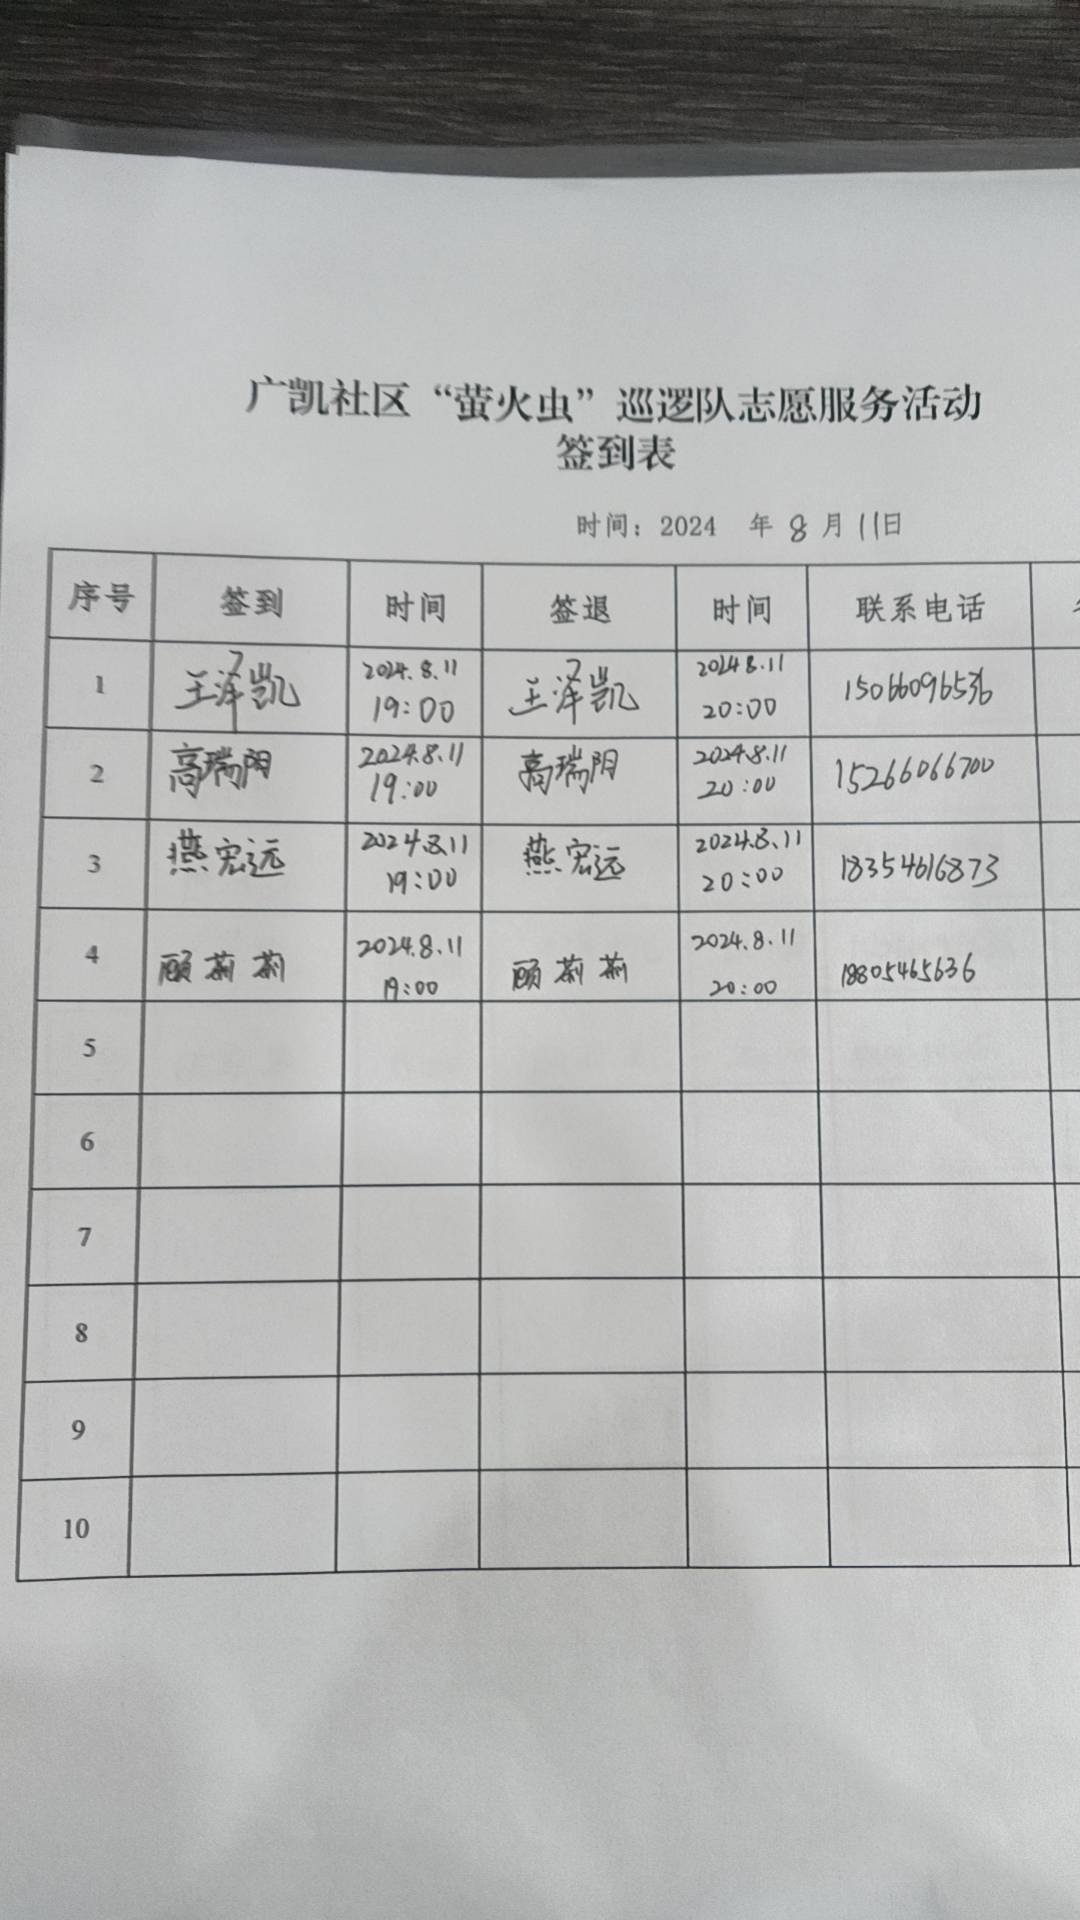 广凯社区“萤火虫”巡逻队志愿服务活动
签到表
时间：2024 年 8 月 11日
序号 签到 时间 签退 时间 联系电话
1 王泽凯 2024.8.11 19:00 王泽凯 2024.8.11 20:00 15066096536
2 高瑞阳 2024.8.11 19:00 高瑞阳 2024.8.11 20:00 15266066700
3 燕宏远 2024.8.11 19:00 燕宏远 2024.8.11 20:00 18354616873
4 顾莉莉 2024.8.11 19:00 顾莉莉 2024.8.11 20:00 18805465636
5
6
7
8
9
10